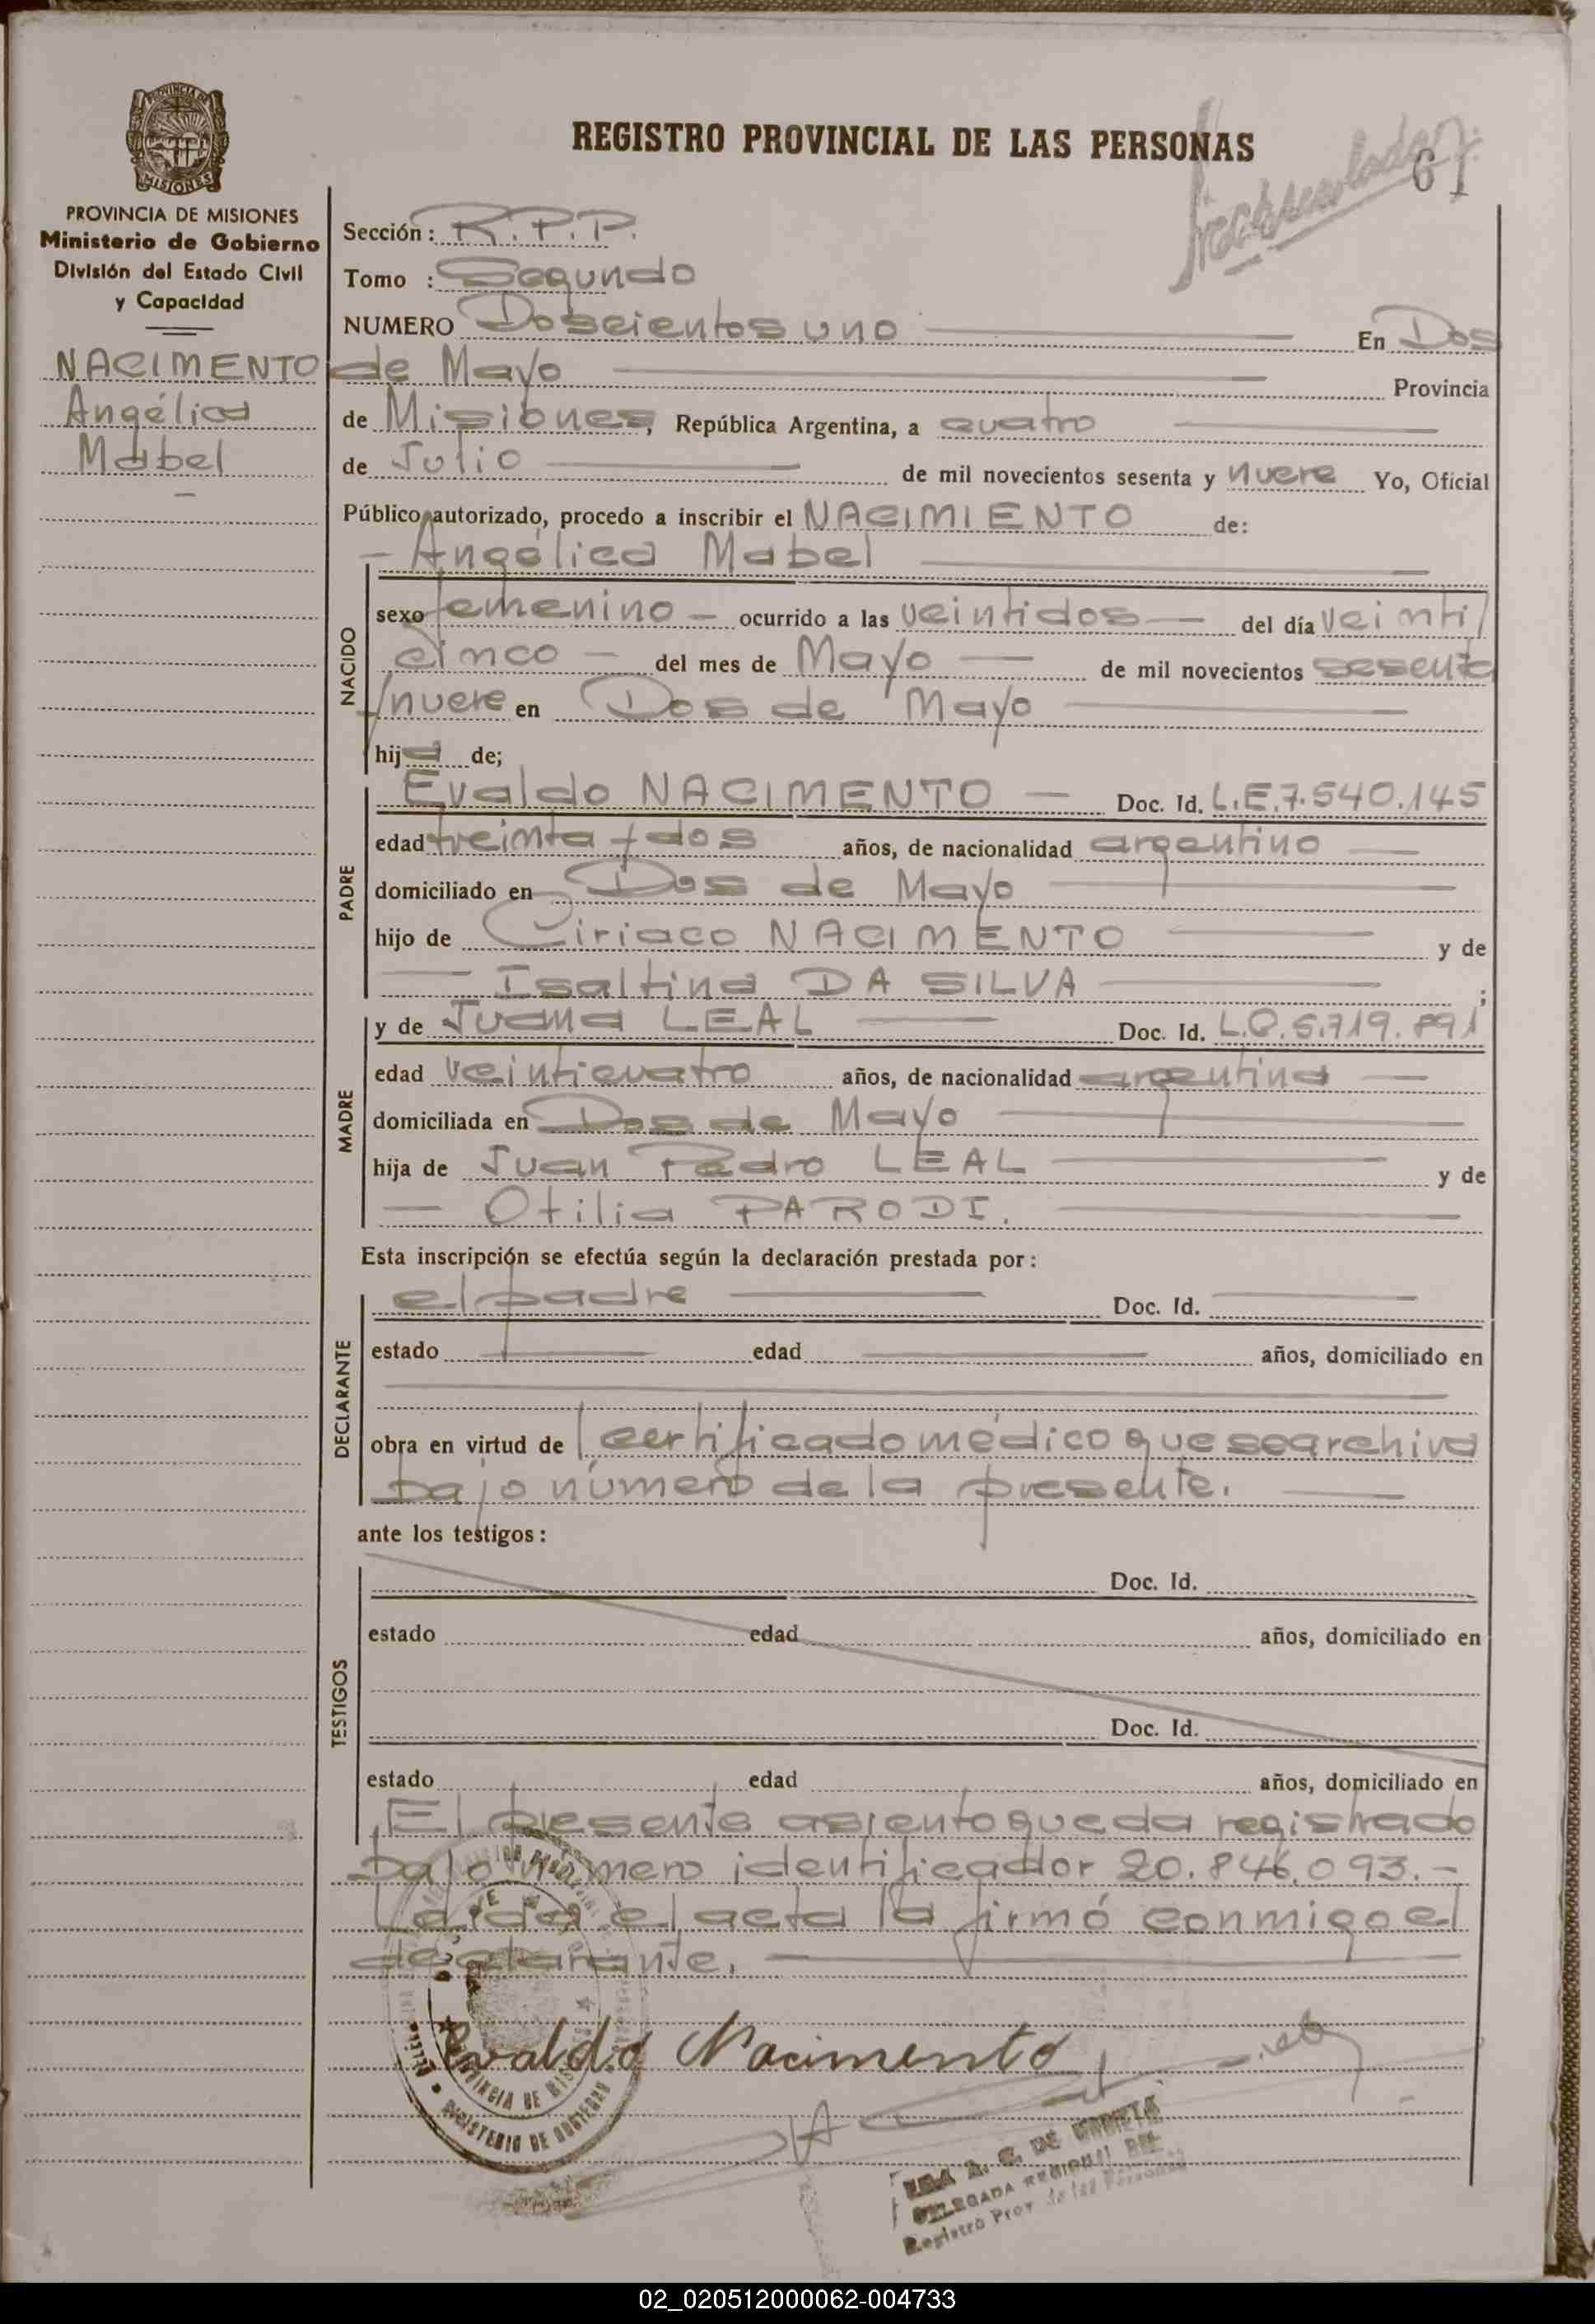 PROVINCIA DE
MISIONES
REGISTRO PROVINCIAL DE LAS PERSONAS
61
PROVINCIA DE MISIONES
Ministerio de Gobierno
División del Estado Civil
y Capacidad
NACIMENTO
Angélica
Mabel
Sección: R.P.P.
Tomo : Segundo
NUMERO Doscientos uno En Dos
de Mayo Provincia
de Misiones, República Argentina, a cuatro
de Julio de mil novecientos sesenta y nueve Yo, Oficial
Público autorizado, procedo a inscribir el NACIMIENTO de:
- Angélica Mabel
NACIDO
sexo femenino - ocurrido a las veintidos del día veinti/
cinco - del mes de Mayo de mil novecientos sesenta
/nueve en Dos de Mayo
hija de;
PADRE
Evaldo NACIMENTO - Doc. Id. L.E.7.540.145
edad treinta y dos años, de nacionalidad argentino
domiciliado en Dos de Mayo
hijo de Ciriaco NACIMENTO y de
Isaltina DA SILVA ;
MADRE
y de Juana LEAL Doc. Id. L.C.5.719.891
edad veinticuatro años, de nacionalidad argentina
domiciliada en Dos de Mayo
hija de Juan Pedro LEAL y de
Otilia PARODI.
Esta inscripción se efectúa según la declaración prestada por:
DECLARANTE
el padre Doc. Id.
estado edad años, domiciliado en
obra en virtud de certificado médico que se archiva
bajo número de la presente.
ante los testigos:
TESTIGOS
Doc. Id.
estado edad años, domiciliado en
Doc. Id.
estado edad años, domiciliado en
El presente asiento queda registrado
bajo número identificador 20.846.093.-
Leída el acta la firmó conmigo el
declarante.
Evaldo Nacimento
PROVINCIA DE MISIONES
MINISTERIO DE GOBIERNO
DELEGADA REGIONAL DEL
Registro Prov. de las Personas
02_020512000062-004733